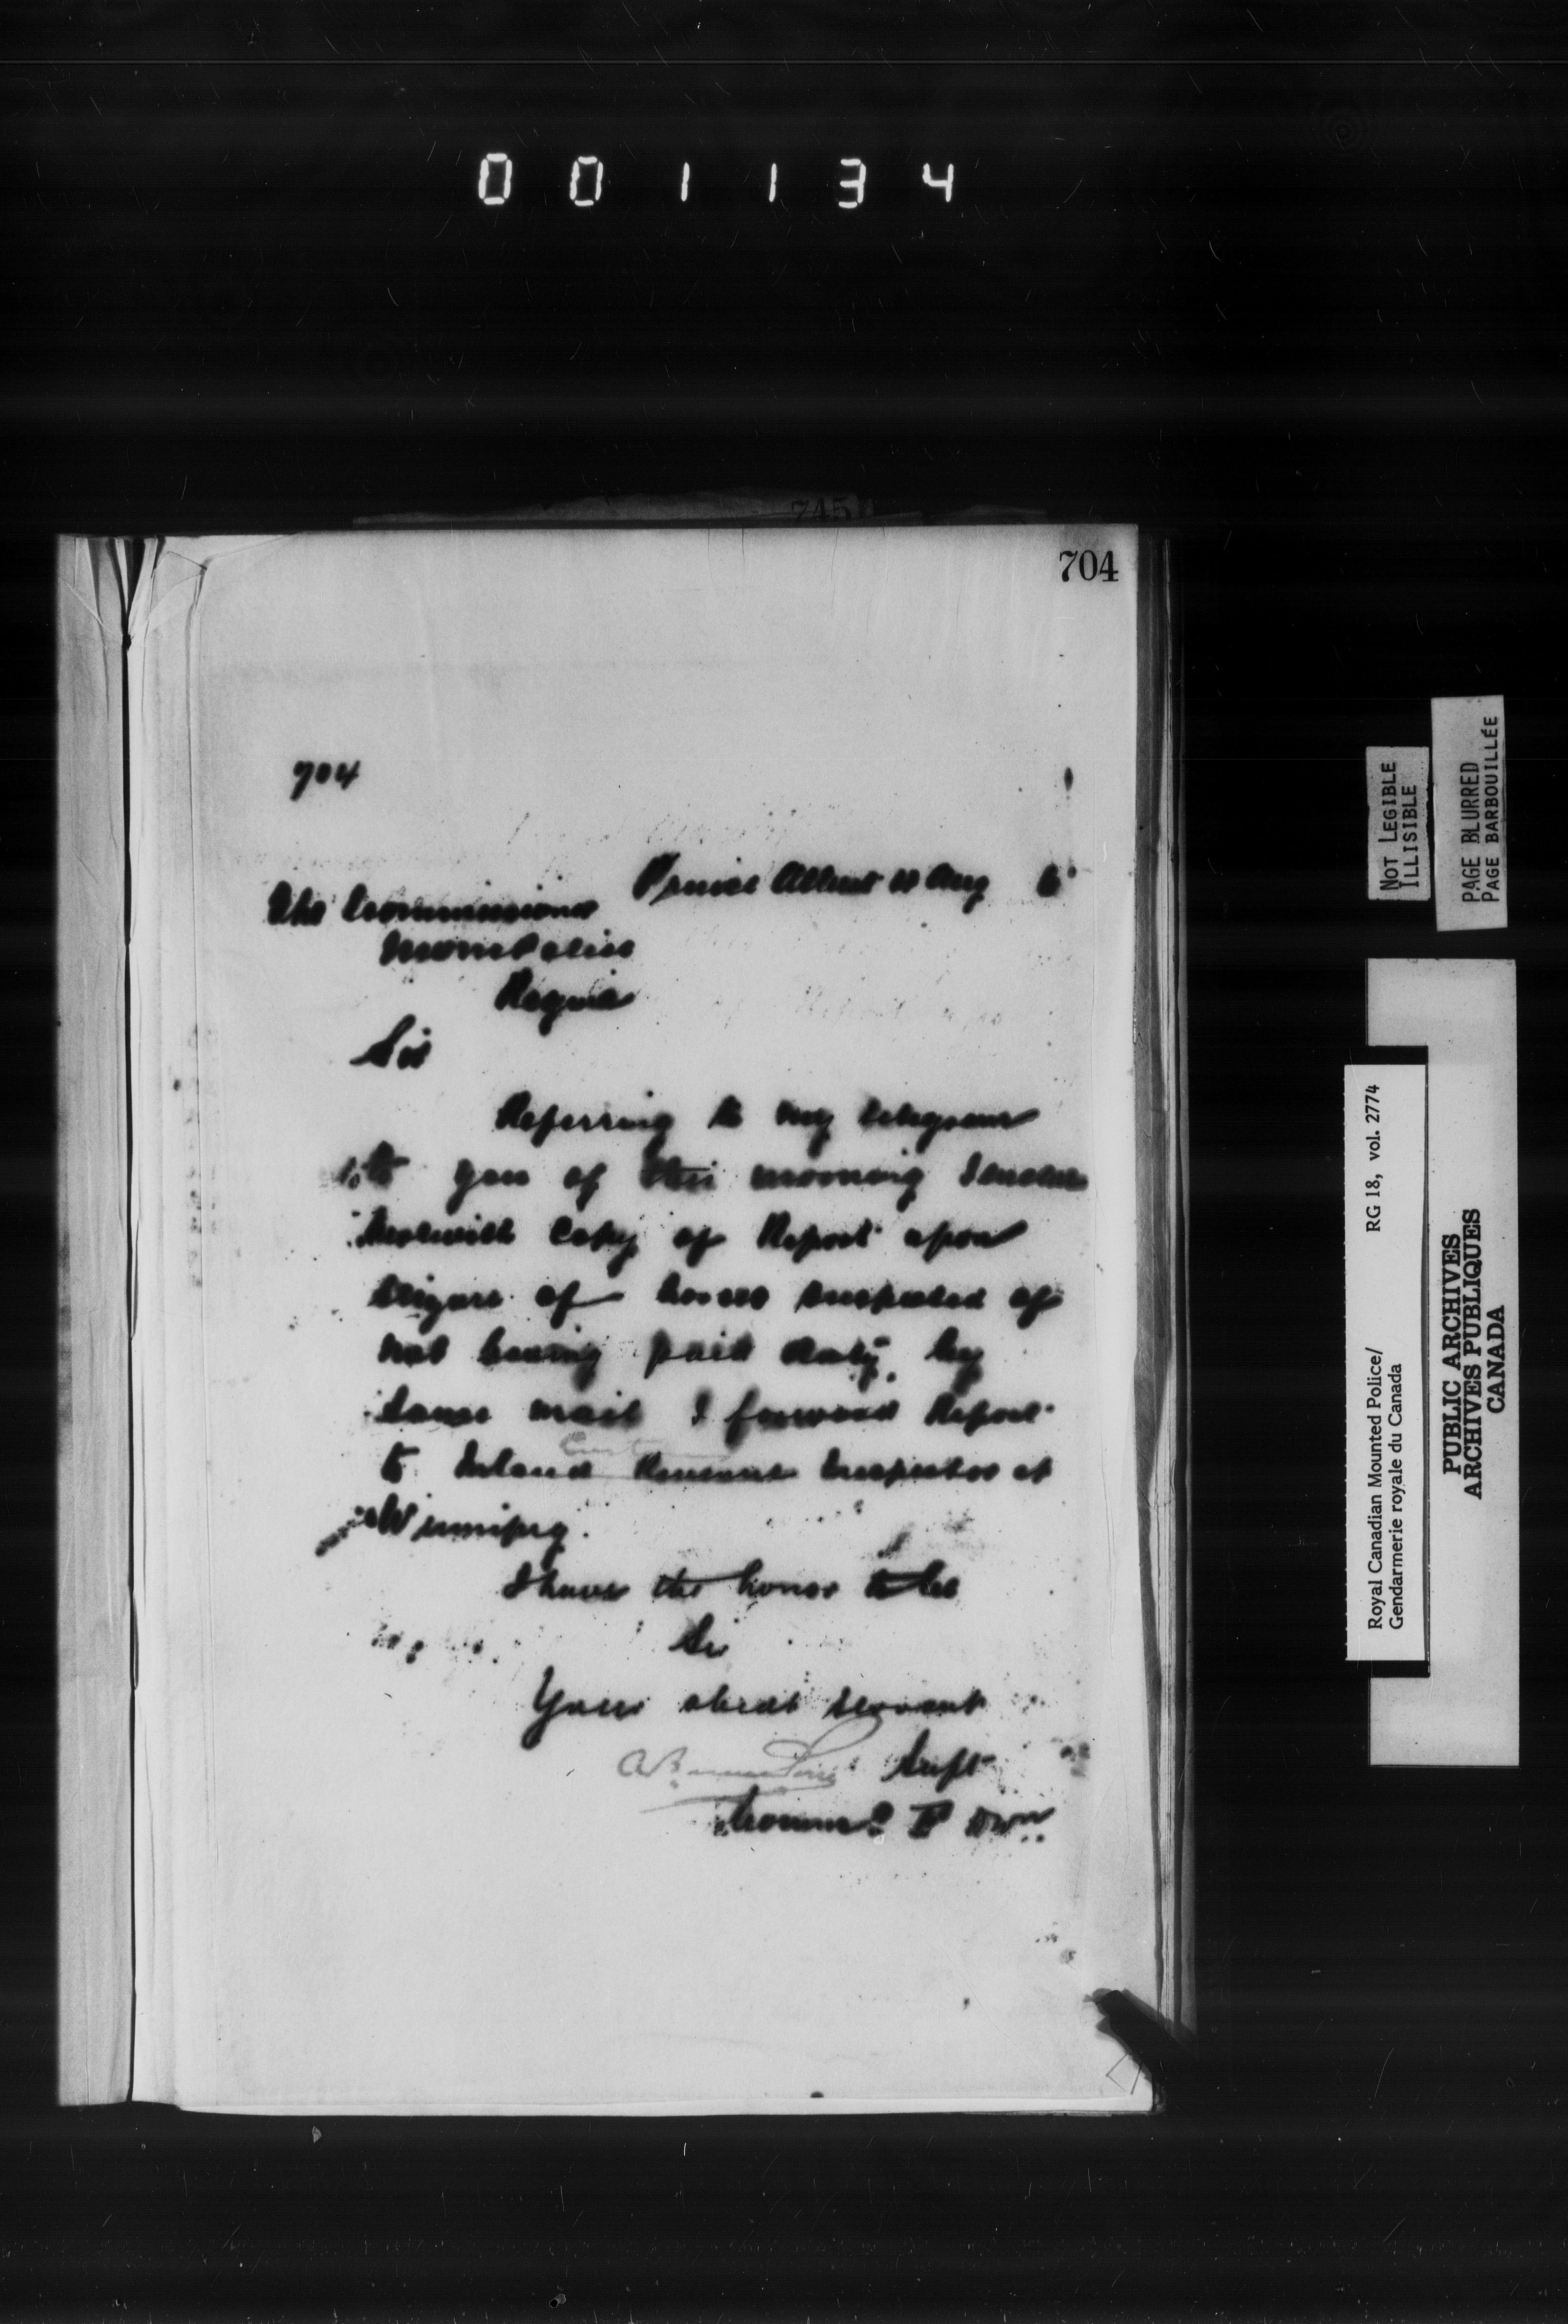 001134
745
704
704
Prince Albert 10 Aug 6
The Commissioner
Mount Police
Regina
Sir
Referring to my telegram
to you of this morning I enclose
herewith Copy of Report upon
seizure of horses suspected of
not having paid duty, by
same mail I forward Report
Customs
to Inland Revenue Inspector at
Winnipeg.
I have the honor to be
Sir
Your obedt servant
Supt
Comm
NOT LEGIBLE
ILLISIBLE
PAGE BLURRED
PAGE BARBOUILLÉE
Royal Canadian Mounted Police/ RG 18, vol. 2774
Gendarmerie royale du Canada
PUBLIC ARCHIVES
ARCHIVES PUBLIQUES
CANADA